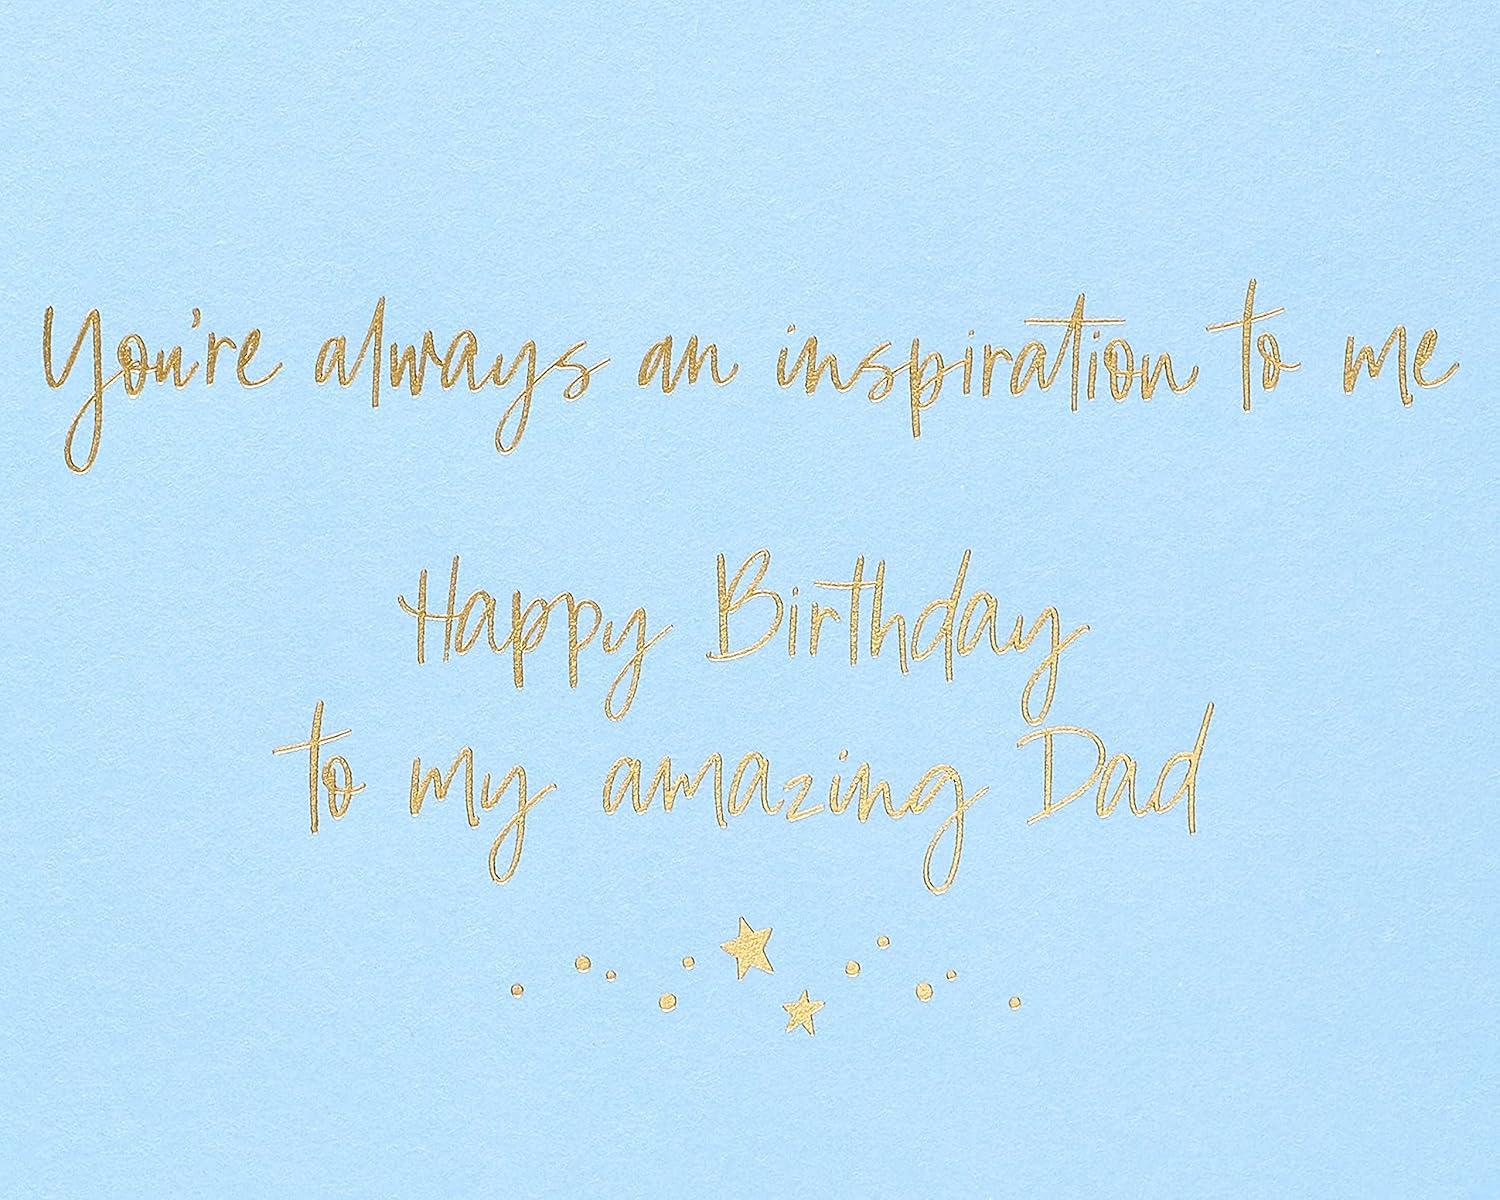 You're always an inspiration to me
Happy Birthday
to my amazing Dad